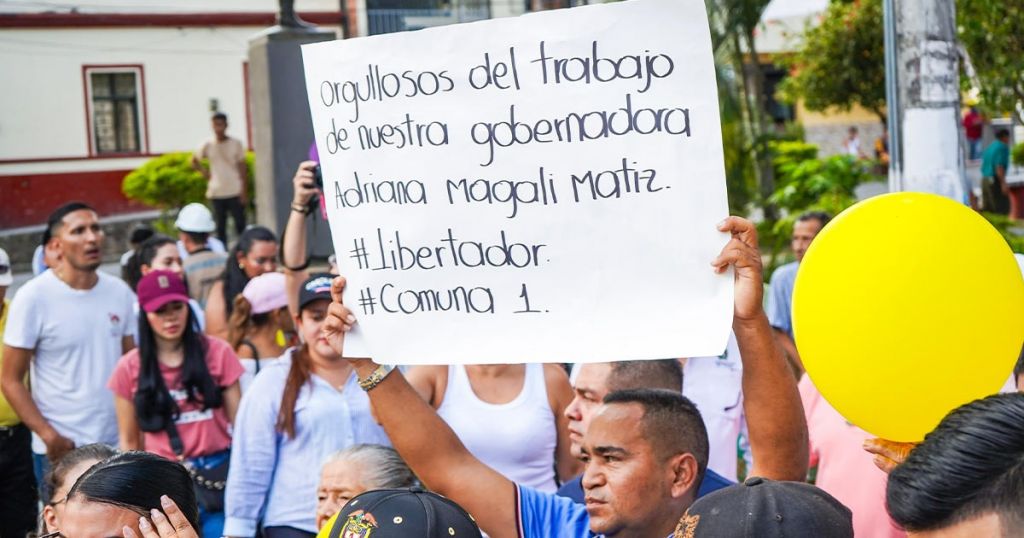 orgullosos del trabajo
de nuestra gobernadora
Adriana Magali Matiz.
#Libertador.
#Comuna 1.